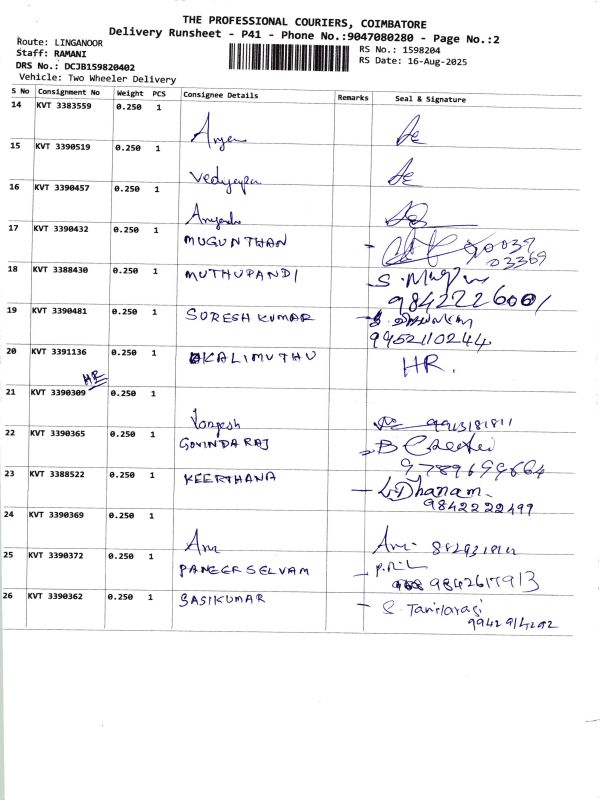 THE PROFESSIONAL COURIERS, COIMBATORE
Delivery Runsheet - P41 - Phone No.:9047080280 - Page No.:2
Route: LINGANOOR
Staff: RAMANI
DRS No.: DCJB159820402
Vehicle: Two Wheeler Delivery
RS No.: 1598204
RS Date: 16-Aug-2025
S No Consignment No Weight PCS Consignee Details Remarks Seal & Signature
14 KVT 3383559 0.250 1
15 KVT 3390519 0.250 1
16 KVT 3390457 0.250 1
17 KVT 3390432 0.250 1 MUGUNTHAN
18 KVT 3388430 0.250 1 MUTHUPANDI
9842226001
19 KVT 3390481 0.250 1 SURESH KUMAR
9952110244
20 KVT 3391136 0.250 1 KALIMUTHU HR.
HR
21 KVT 3390309 0.250 1
22 KVT 3390365 0.250 1 GOVINDARAJ
9789699664
23 KVT 3388522 0.250 1 KEERTHANA L. Dhanam
9842222499
24 KVT 3390369 0.250 1
25 KVT 3390372 0.250 1 PANEER SELVAM
9842617913
26 KVT 3390362 0.250 1 SASIKUMAR
9942914292